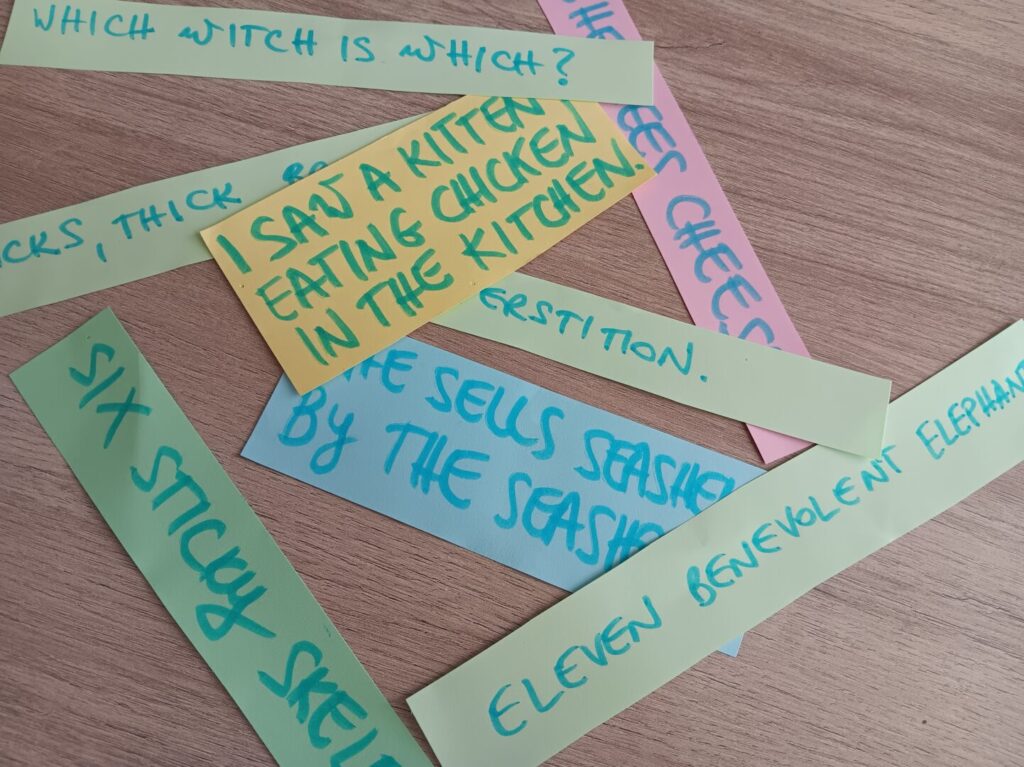 WHICH WITCH IS WHICH?
CKS, THICK
I SAW A KITTEN
EATING CHICKEN
IN THE KITCHEN.
EES CHEES
ERSTITION.
HE SELLS SEASHEL
By THE SEASHE
SIX STICKY SKEL
ELEVEN BENEVOLENT ELEPHAN